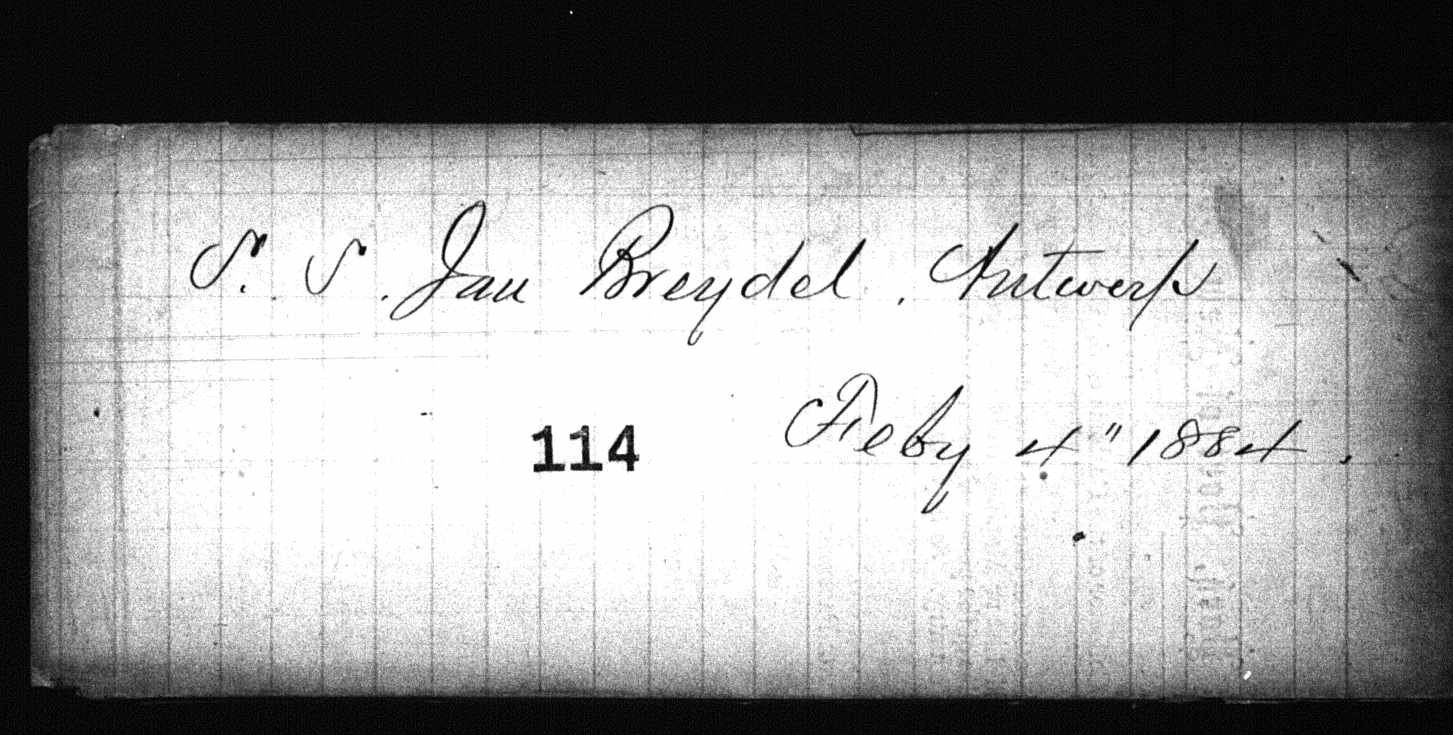 S. S. Jan Breydel. Antwerp
114 Feby 4" 1884.